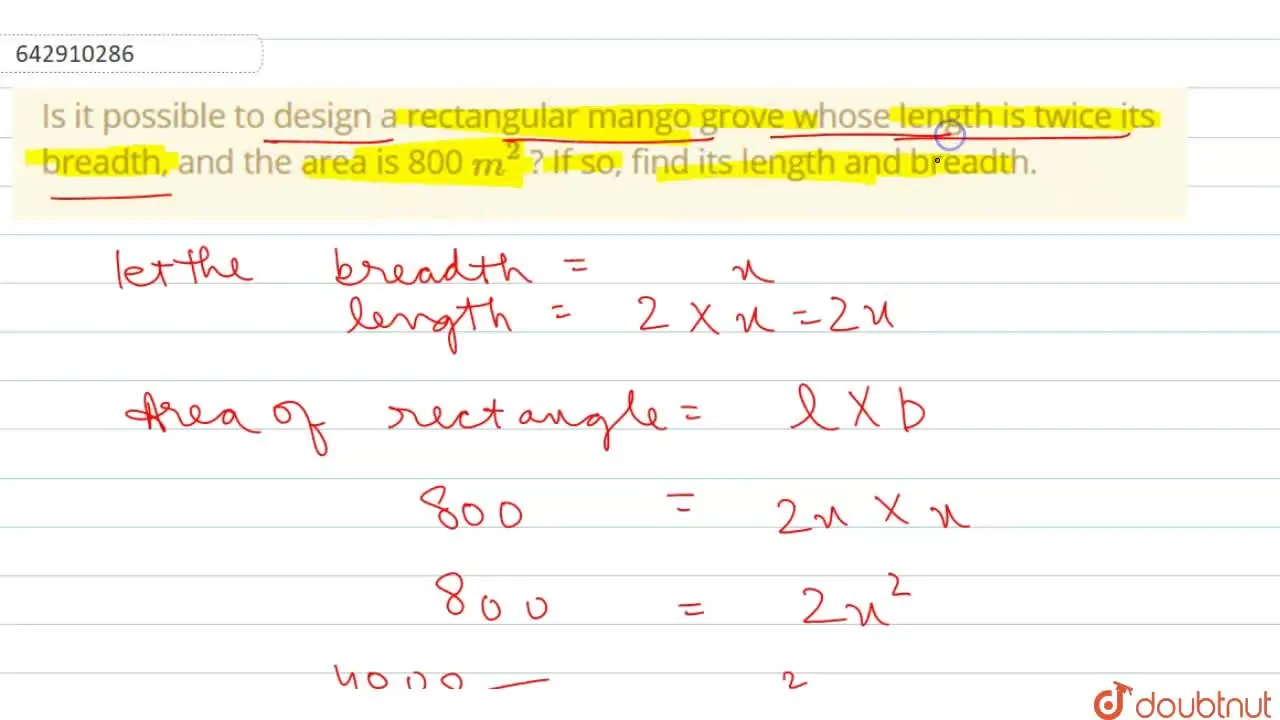 642910286
Is it possible to design a rectangular mango grove whose length is twice its
breadth, and the area is 800 m² ? If so, find its length and breadth.
let the breadth = x
length = 2 × x = 2x
Area of rectangle = l × b
800 = 2x × x
800 = 2x²
doubtnut